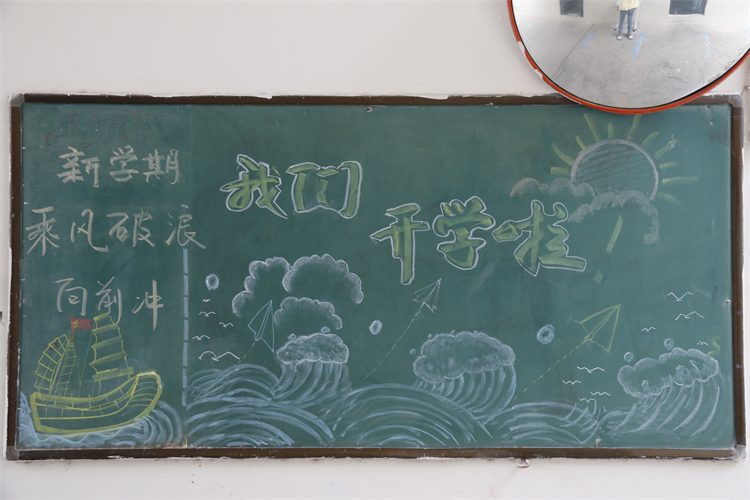 新学期
乘风破浪
向前冲
我们
开学啦!